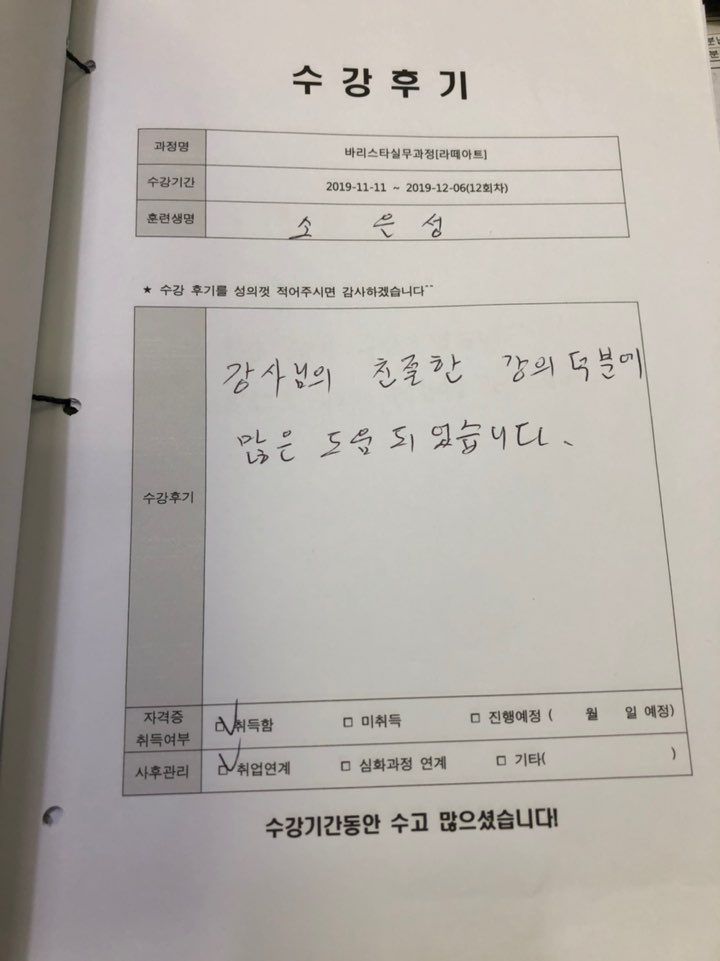 수강후기
과정명 바리스타실무과정[라떼아트]
수강기간 2019-11-11 ~ 2019-12-06(12회차)
훈련생명 소 은 성
★ 수강 후기를 성의껏 적어주시면 감사하겠습니다^^
강사님의 친절한 강의 덕분에
많은 도움 되었습니다.
수강후기
자격증
취득여부 □ 취득함 □ 미취득 □ 진행예정 ( 월 일 예정)
사후관리 □ 취업연계 □ 심화과정 연계 □ 기타( )
수강기간동안 수고 많으셨습니다!